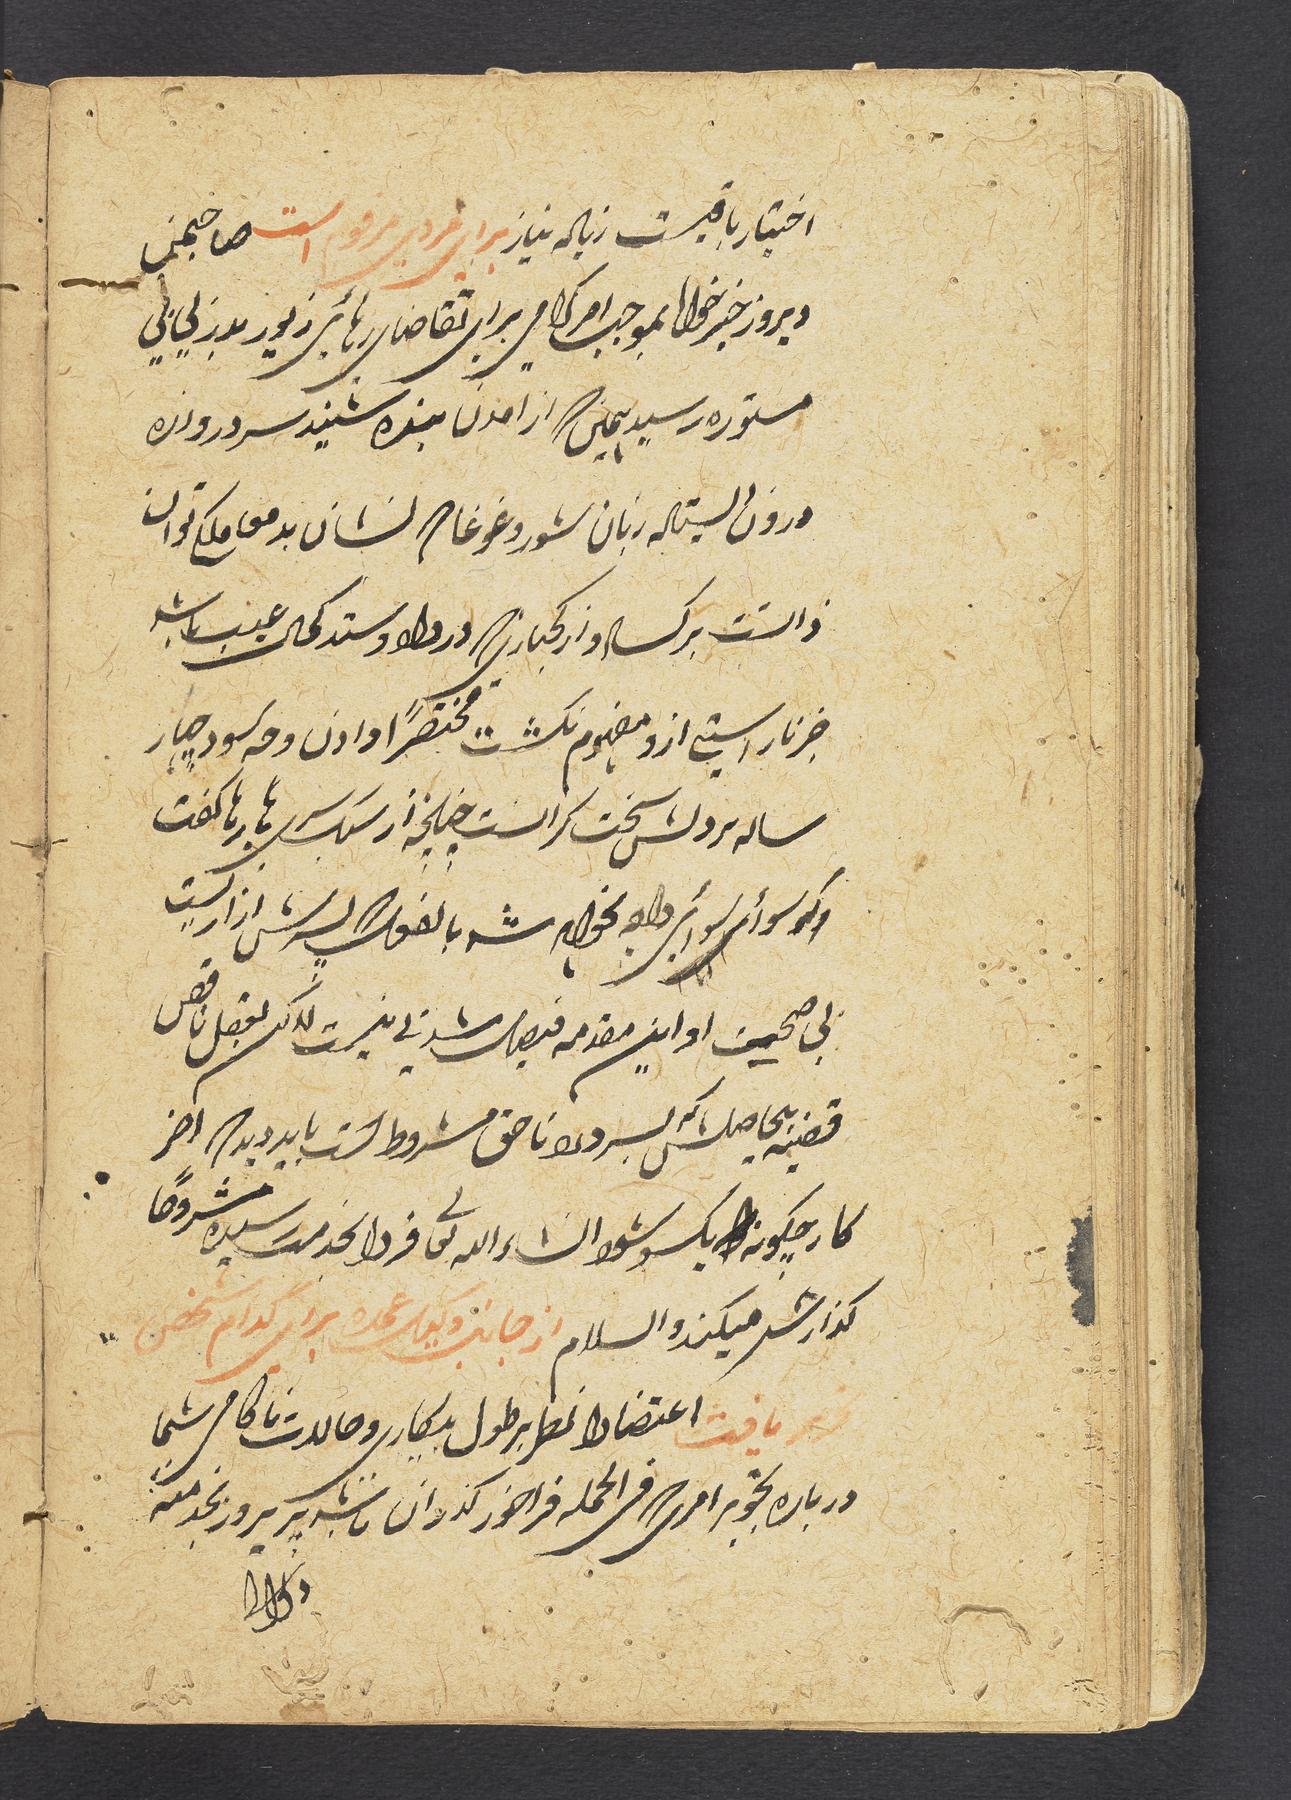 اختیار باقیست زیاده نیاز برای مردی مرقوم است صاحب من
دیروز خیرخواه بموجب امر گرامی برای تقاضای رهائی زیور بدر بی بی
مستوره رسید همین که از آمدن بنده شنید سر دروازه
درون ایستاده زبان شور و غوغا که نشان بدمعاملگی توان
دانست برکشاد از کجبازی که در داد و ستد کمال عیب باشد
جز ناراستی ازو مفهوم نگشت مختصراً دادن وجه سود چهار
ساله بر دلش سخت گرانست چنانچه از سبکسری بارها گفت
که سوای سوائی داده نخواهم شد بالفعل پرسش ازار است
بی صحت او این مقدمه فیصل شدنی نیست لاکن بعقل ناقص
قضیه بیحاصلش که بسر و پا ناحق مشروط است باید دید که آخر
کار چگونه یکسو شود انشاء الله تعالی فردا بخدمت رسیده مشروحاً
گذارش میکند والسلام از جانب وکیل عمده برای کدام شخص
تحریر یافت اعتضادا نظر بر طول بیکاری و حالت ناکامی شما
درباره تجویز امری که فی الجمله فراخور گذران باشد پریروز بخدمت